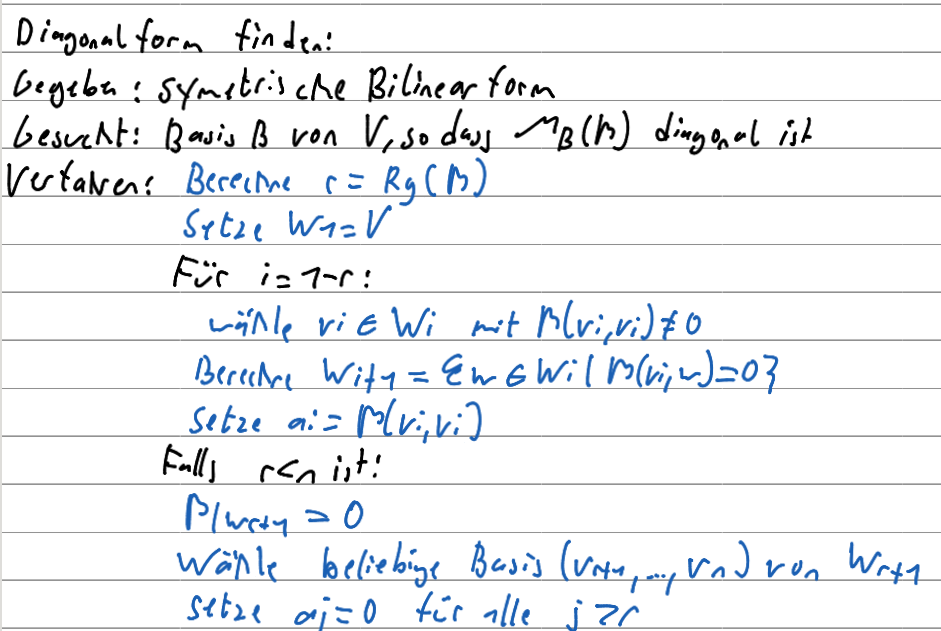 Diagonalform finden:
Gegeben: symetrische Bilinearform
Gesucht: Basis B von V, so dass M_B(β) diagonal ist
Verfahren: Berechne r = Rg(β)
Setze W1=V
Für i=1-r:
wähle vi ∈ Wi mit β(vi,vi)≠0
Berechne Wi+1 = {w ∈ Wi | β(vi,w)=0}
Setze ai = β(vi,vi)
Falls r<n ist:
β|Wr+1 = 0
Wähle beliebige Basis (vr+1,...,vn) von Wr+1
setze aj=0 für alle j>r